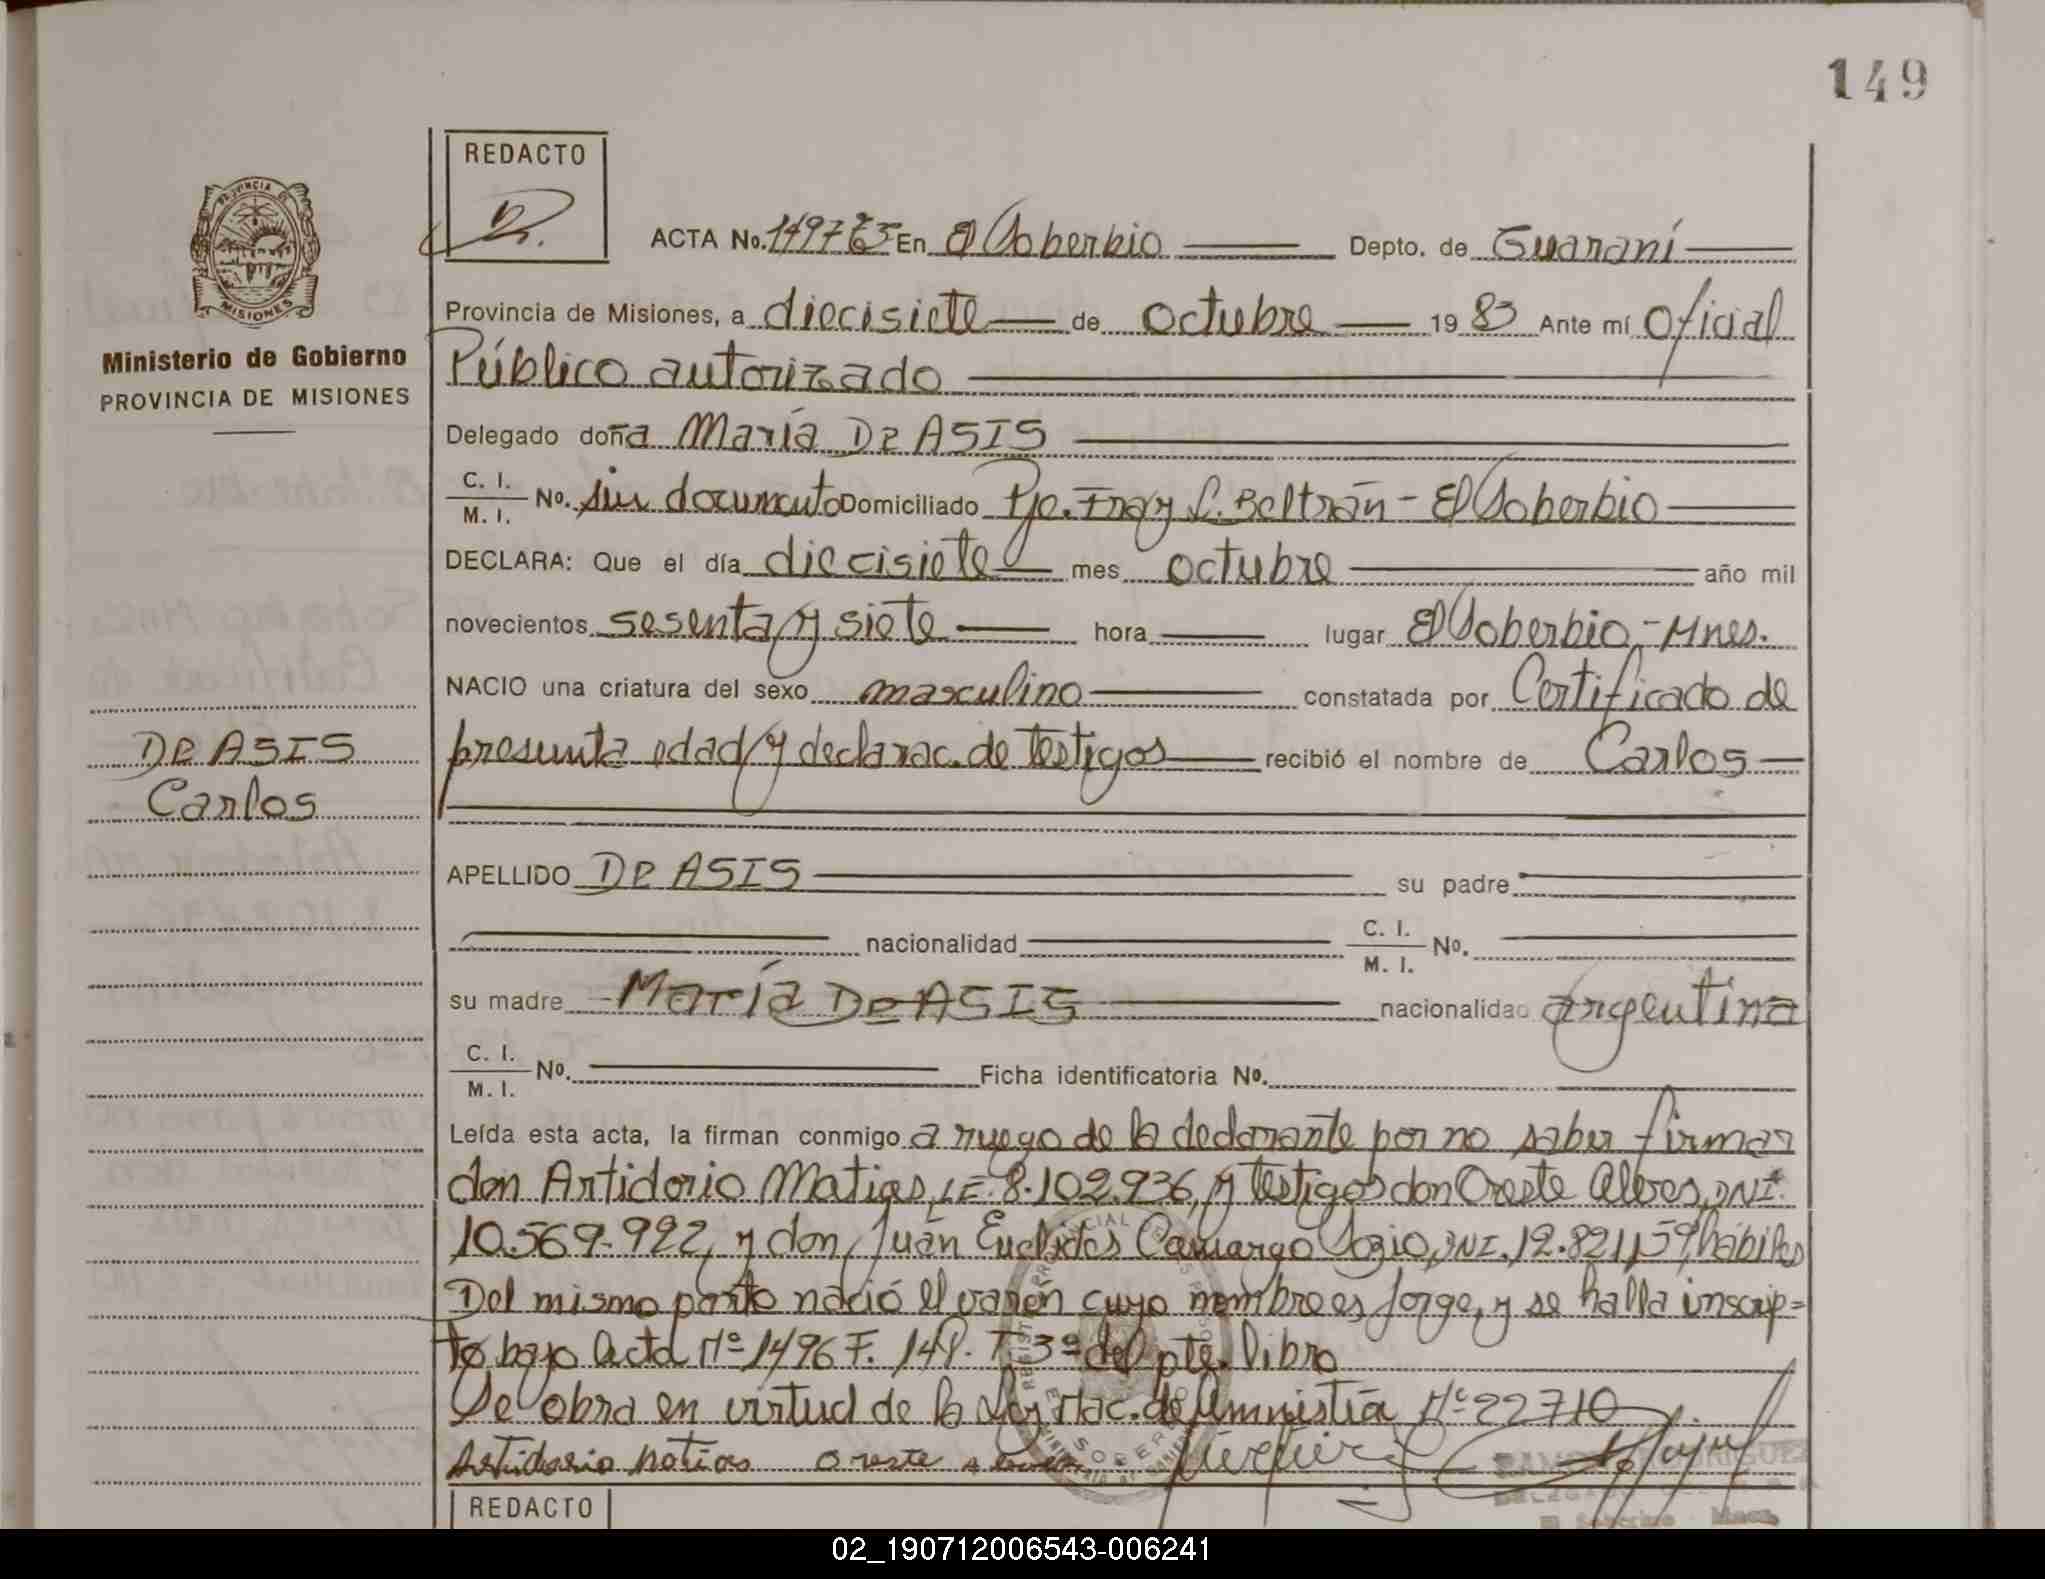 149
REDACTO
ACTA No. En El Soberbio Depto. de Guaraní
Provincia de Misiones, a diecisiete de octubre 19 83 Ante mí Oficial
Público autorizado
Delegado doña María De ASIS
C. I.
M. I. No. sin documento Domiciliado Pje. Fray L. Beltrán - El Soberbio
DECLARA: Que el día diecisiete mes octubre año mil
novecientos sesenta y siete hora lugar El Soberbio - Mnes.
NACIO una criatura del sexo masculino constatada por Certificado de
presunta edad y declarac. de testigos recibió el nombre de Carlos
APELLIDO De ASIS su padre
nacionalidad C. I.
M. I. No.
su madre María De ASIS nacionalidad argentina
C. I.
M. I. No. Ficha identificatoria No.
Leída esta acta, la firman conmigo a ruego de la declarante por no saber firmar
don Artidorio Matias, L.E. 8.102.936, y testigos don Oreste Alves, DNI.
10.569.922, y don Juán Euclides Camargo DNI. 12.821.159 hábiles
Del mismo parto nació el varón cuyo nombre es Jorge, y se halla inscrip=
to bajo Acta Nº 1496 F. 148. T 3º del pte. libro
Se obra en virtud de la Ley Nac. de Amnistía Nº 22710
Artidorio Matias Oreste Alves
REDACTO
PROVINCIA DE MISIONES
Ministerio de Gobierno
PROVINCIA DE MISIONES
De ASIS
Carlos
02_190712006543-006241